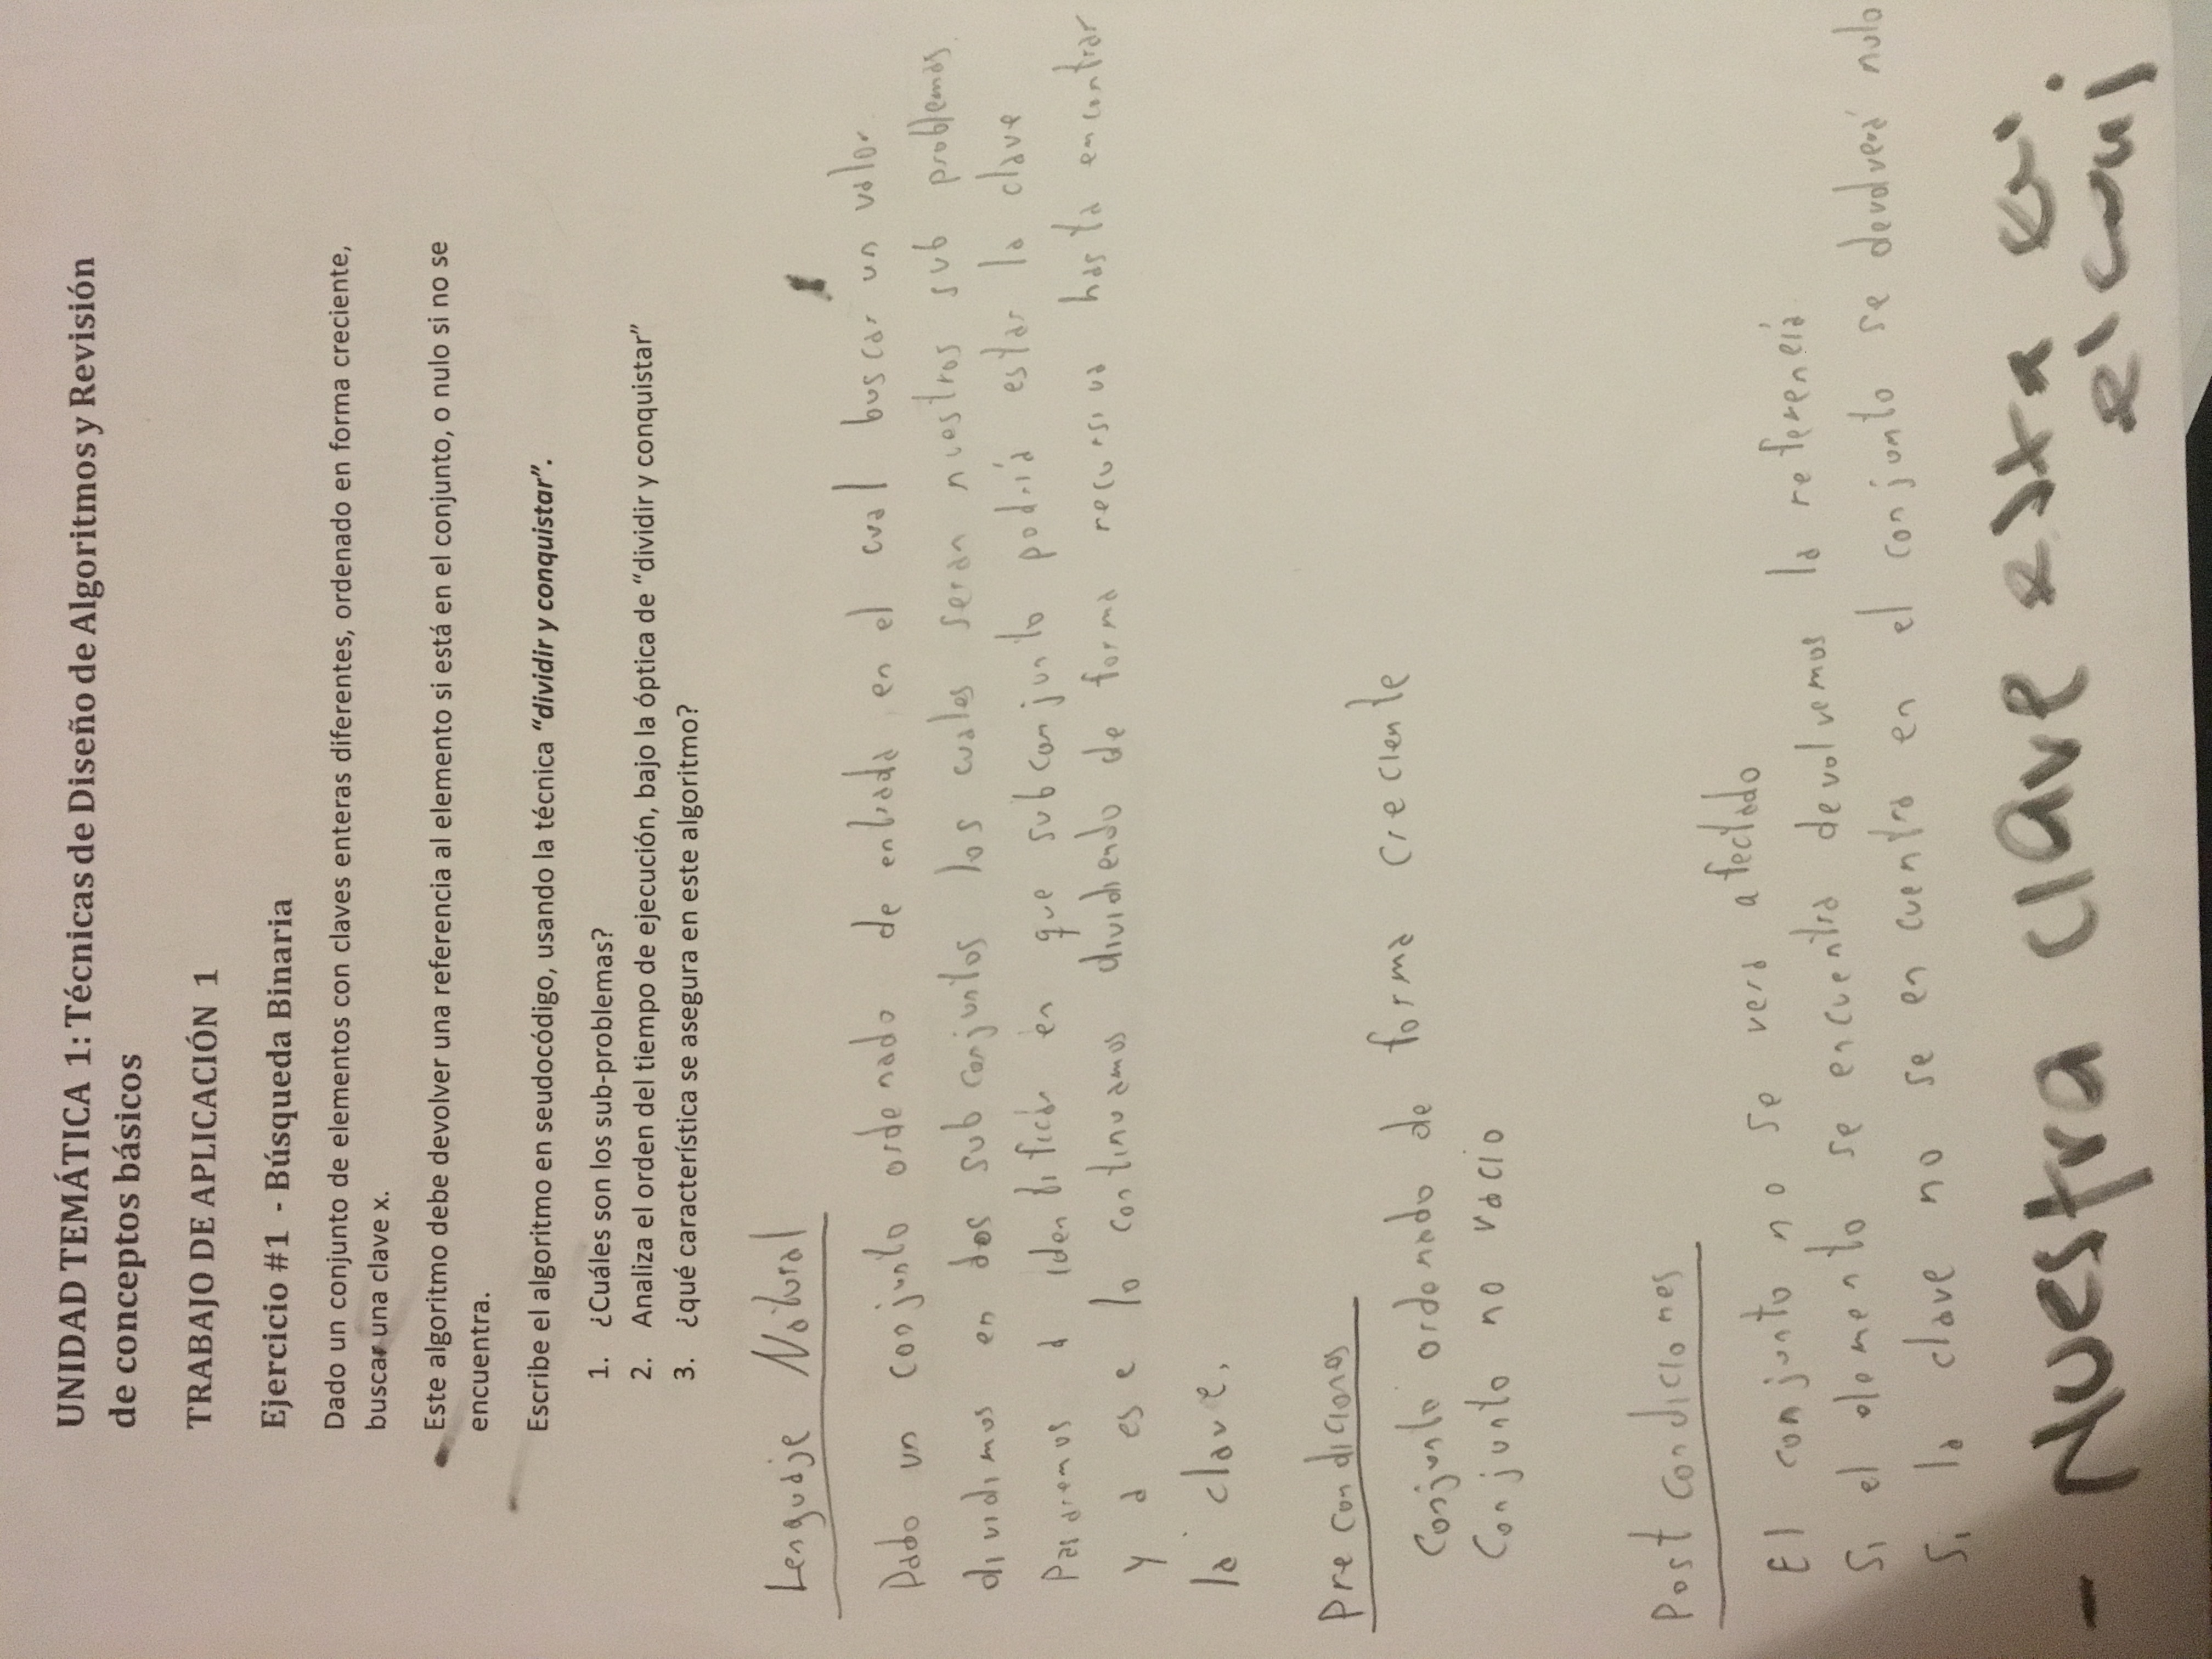 UNIDAD TEMÁTICA 1: Técnicas de Diseño de Algoritmos y Revisión
de conceptos básicos
TRABAJO DE APLICACIÓN 1
Ejercicio #1 - Búsqueda Binaria
Dado un conjunto de elementos con claves enteras diferentes, ordenado en forma creciente,
buscar una clave x.
Este algoritmo debe devolver una referencia al elemento si está en el conjunto, o nulo si no se
encuentra.
Escribe el algoritmo en seudocódigo, usando la técnica “dividir y conquistar”.
1. ¿Cuáles son los sub-problemas?
2. Analiza el orden del tiempo de ejecución, bajo la óptica de “dividir y conquistar”
3. ¿qué característica se asegura en este algoritmo?
Lenguaje Natural
Dado un conjunto ordenado de entrada en el cual buscar un valor
dividimos en dos subconjuntos los cuales seran nuestros sub problemas.
Pasaremos a identificar en que subconjunto podría estar la clave
y a ese lo continuamos dividiendo de forma recursiva hasta encontrar
la clave.
Pre condiciones
Conjunto ordenado de forma creciente
Conjunto no vacio
Post condiciones
El conjunto no se vera afectado
Si el elemento se encuentra devolvemos la referencia
Si la clave no se encuentra en el conjunto se devolverá nulo
- Nuestra clave esta en
el conj.